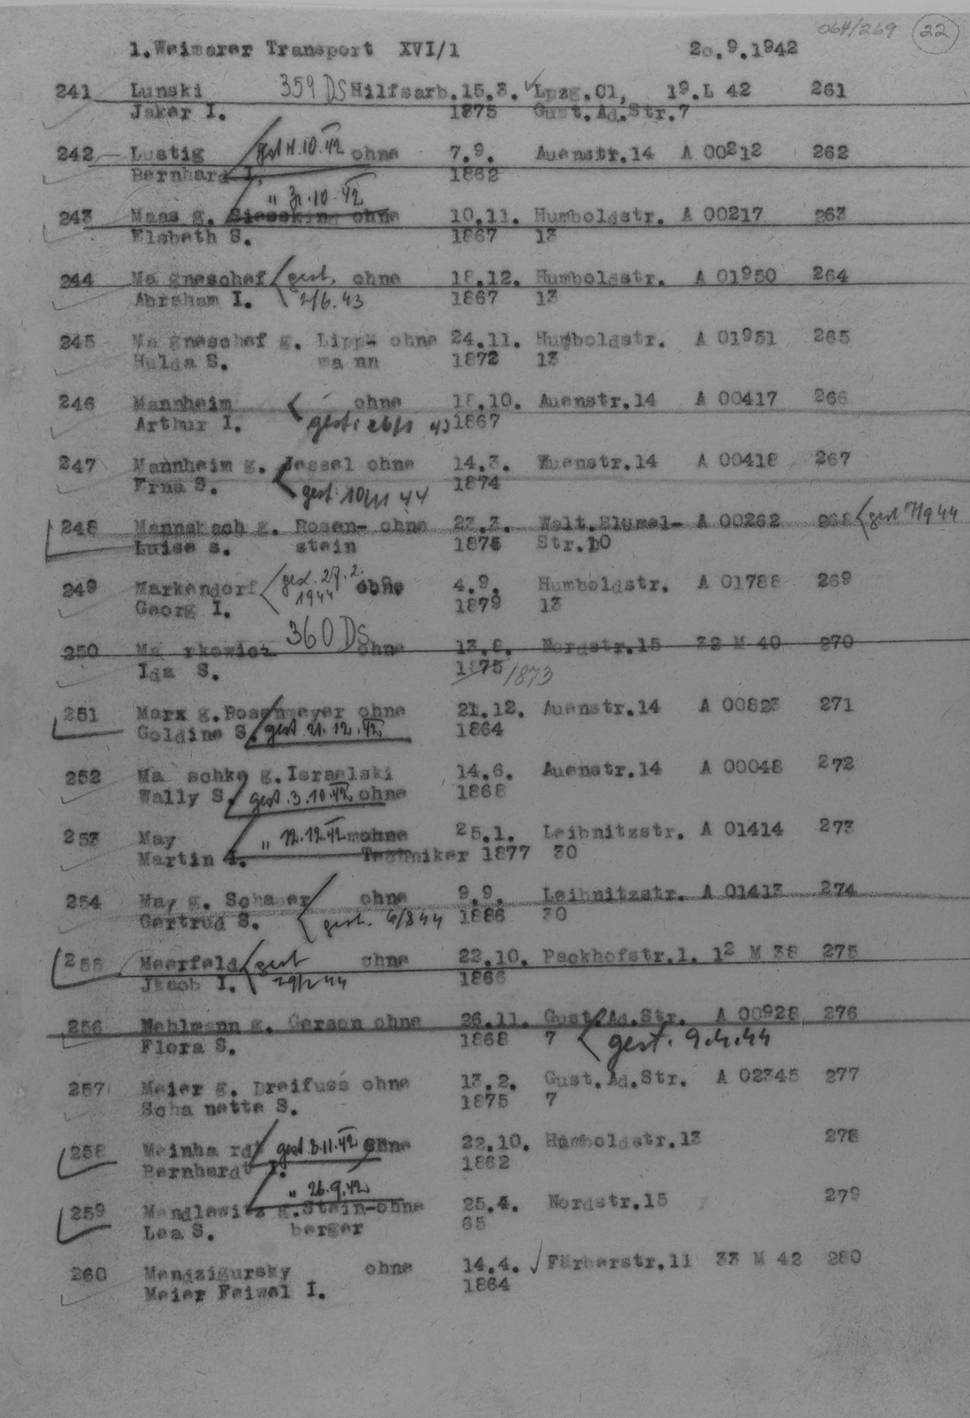 064/269 22
1.Weimarer Transport XVI/1 2o.9.1942
241 Lunski 359 DS Hilfsarb.15.3. Lpzg.C1, 19.L 42 261
Jaker I. 1875 Gust.Ad.Str.7
242 Lustig gest 11.10.42 ohne 7.9. Auenstr.14 A 00212 262
Bernhard I. 1862
" 31.10.42
243 Maas g. Siesskind ohne 10.11. Humboldstr. A 00217 263
Elsbeth S. 1867 13
244 Ma gneschef gest. ohne 18.12. Humboldstr. A 01950 264
Abraham I. 2/6.43 1867 13
245 Ma gneschef g. Lipp- ohne 24.11. Humboldstr. A 01951 265
Hulda S. ma nn 1872 13
246 Mannheim ohne 18.10. Auenstr.14 A 00417 266
Arthur I. gest: 26/1 43 1867
247 Mannheim g. Jessel ohne 14.3. Auenstr.14 A 00418 267
Erna S. gest: 10/1 44 1874
248 Mannsbach g. Rosen- ohne 23.3. Walt.Blümel- A 00262 268 gest 7/9 44
Luise s. stein 1875 Str.10
249 Markendorf gest. 29.2. ohne 4.9. Humboldstr. A 01788 269
Georg I. 1944 1879 13
360 DS
250 Ma rkowicz ohne 13.8. Nordstr.15 32 M 40 270
Ida S. 1875 /1873
251 Marx g.Rosenmeyer ohne 21.12. Auenstr.14 A 00823 271
Goldine S. gest 21.12.42 1864
252 Ma schke g.Israelski 14.6. Auenstr.14 A 00048 272
Wally S. gest.3.10.42 ohne 1868
253 May " 12.12.42 ohne 25.1. Leibnitzstr. A 01414 273
Martin I. Techniker 1877 30
254 May g. Schauer ohne 9.9. Leibnitzstr. A 01413 274
Gertrud S. gest. 6/8 44 1886 30
255 Meerfeld gest ohne 22.10. Packhofstr.1. 12 M 38 275
Jkaob I. 29/2 44 1866
256 Mehlmann g. Gerson ohne 26.11. Gust.Ad.Str. A 00928 276
Flora S. 1868 7 gest. 9.4.44
257 Meier g. Dreifuss ohne 13.2. Gust.Ad.Str. A 02345 277
Scha nette S. 1875 7
258 Meinha rdt gest 3.11.42 ohne 22.10. Humboldstr.13 278
Bernhardt I. 1862
" 26.9.42
259 Mendlewitz g.Stein-ohne 25.4. Nordstr.15 279
Lea S. berger 65
260 Mendzigursky ohne 14.4. Färberstr.11 33 M 42 280
Meier Feiwel I. 1864